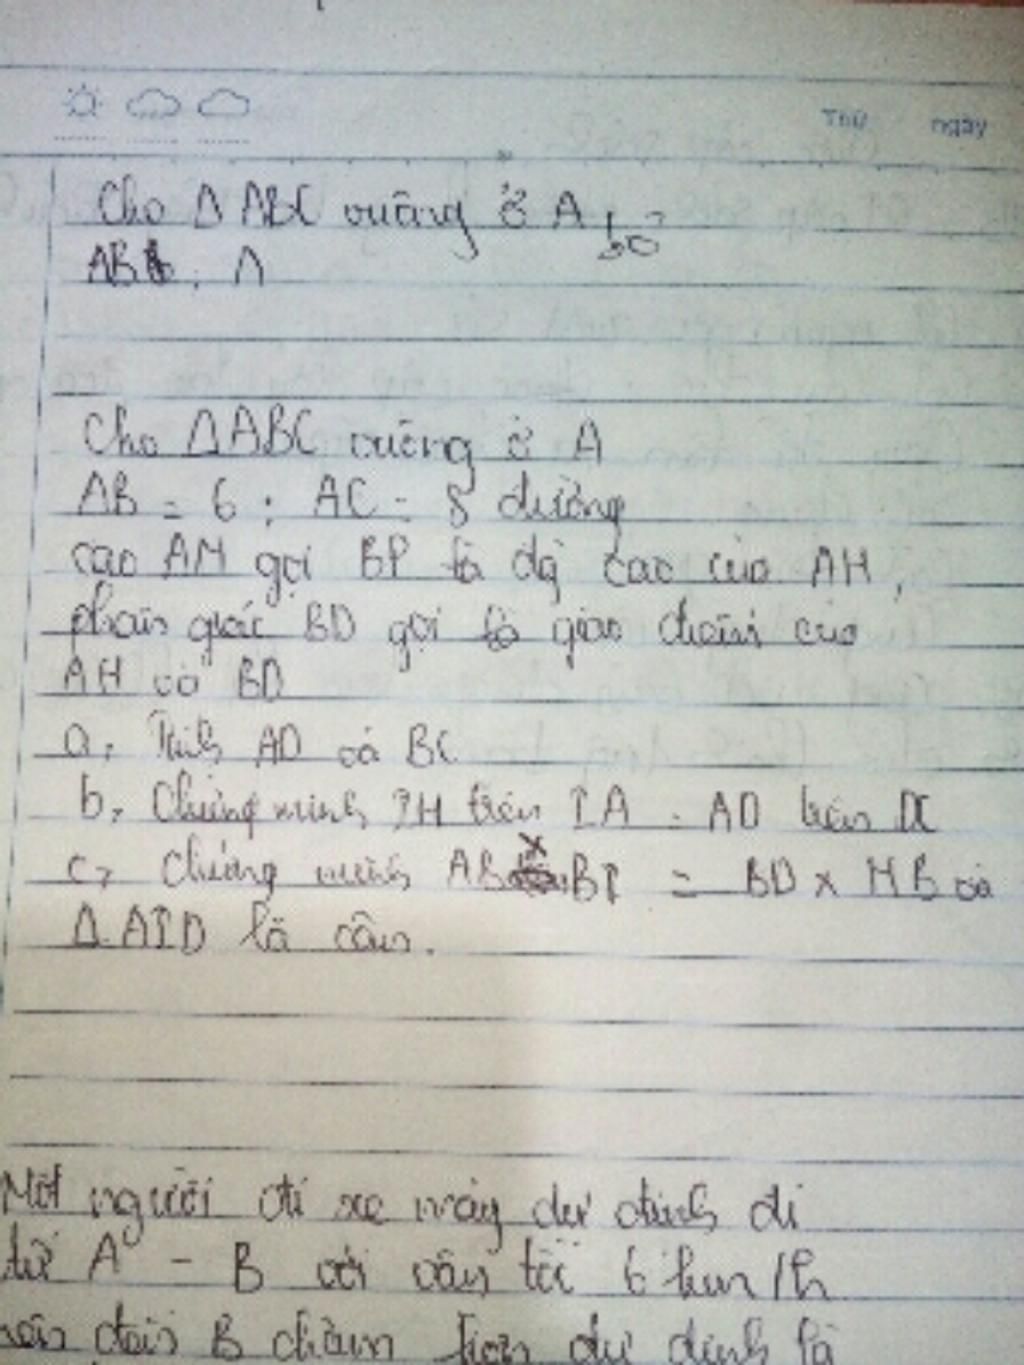 Thứ ngày
Cho Δ ABC vuông ở A
AB
Cho ΔABC vuông ở A
AB = 6 ; AC = 8 đường
cao AH gọi BP là độ cao của AH,
phân giác BD gọi là giao điểm của
AH và BD
a, Tính AD và BC
b, Chứng minh IH trên IA = AD trên DC
c, Chứng minh AB x BI = BD x HB và
Δ AID là cân.
Một người đi xe máy dự định đi
từ A - B với vận tốc 6 km/h
nên đến B chậm hơn dự định là